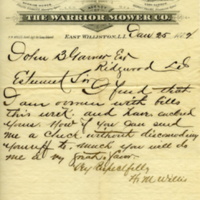 THE WARRIOR MOWER CO.
EAST WILLISTON, L.I. Jan 25 188
John B Garner Esq
Ridgewood L I
Esteemed Sir I find that
I am overrun with bills
this week and have
yours. Now if you can send
me a check without discommoding
yourself to much you will do
me a
Respectfully
H. M. Willis